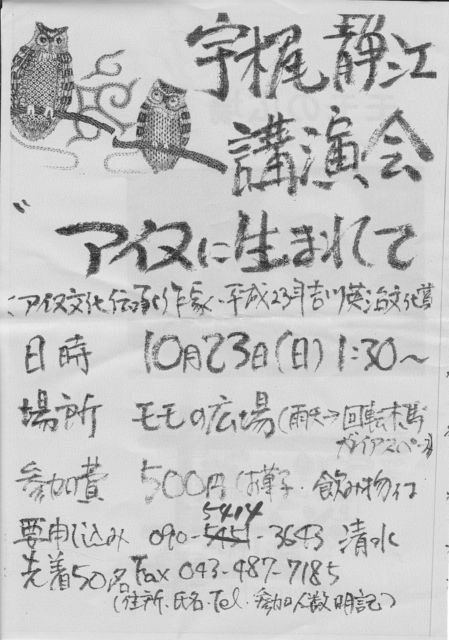 宇梶静江
講演会
アイヌに生まれて
アイヌ文化伝承作家・平成23年吉川英治文化賞
日時 10月23日(日) 1:30〜
場所 モモの広場(雨天→回転木馬
ガイアスペース)
参加費 500円(お菓子・飲み物付
5414
要申し込み 090-5451-3643 清水
先着50名 Fax 043-487-7185
(住所・氏名・Tel・参加人数明記)